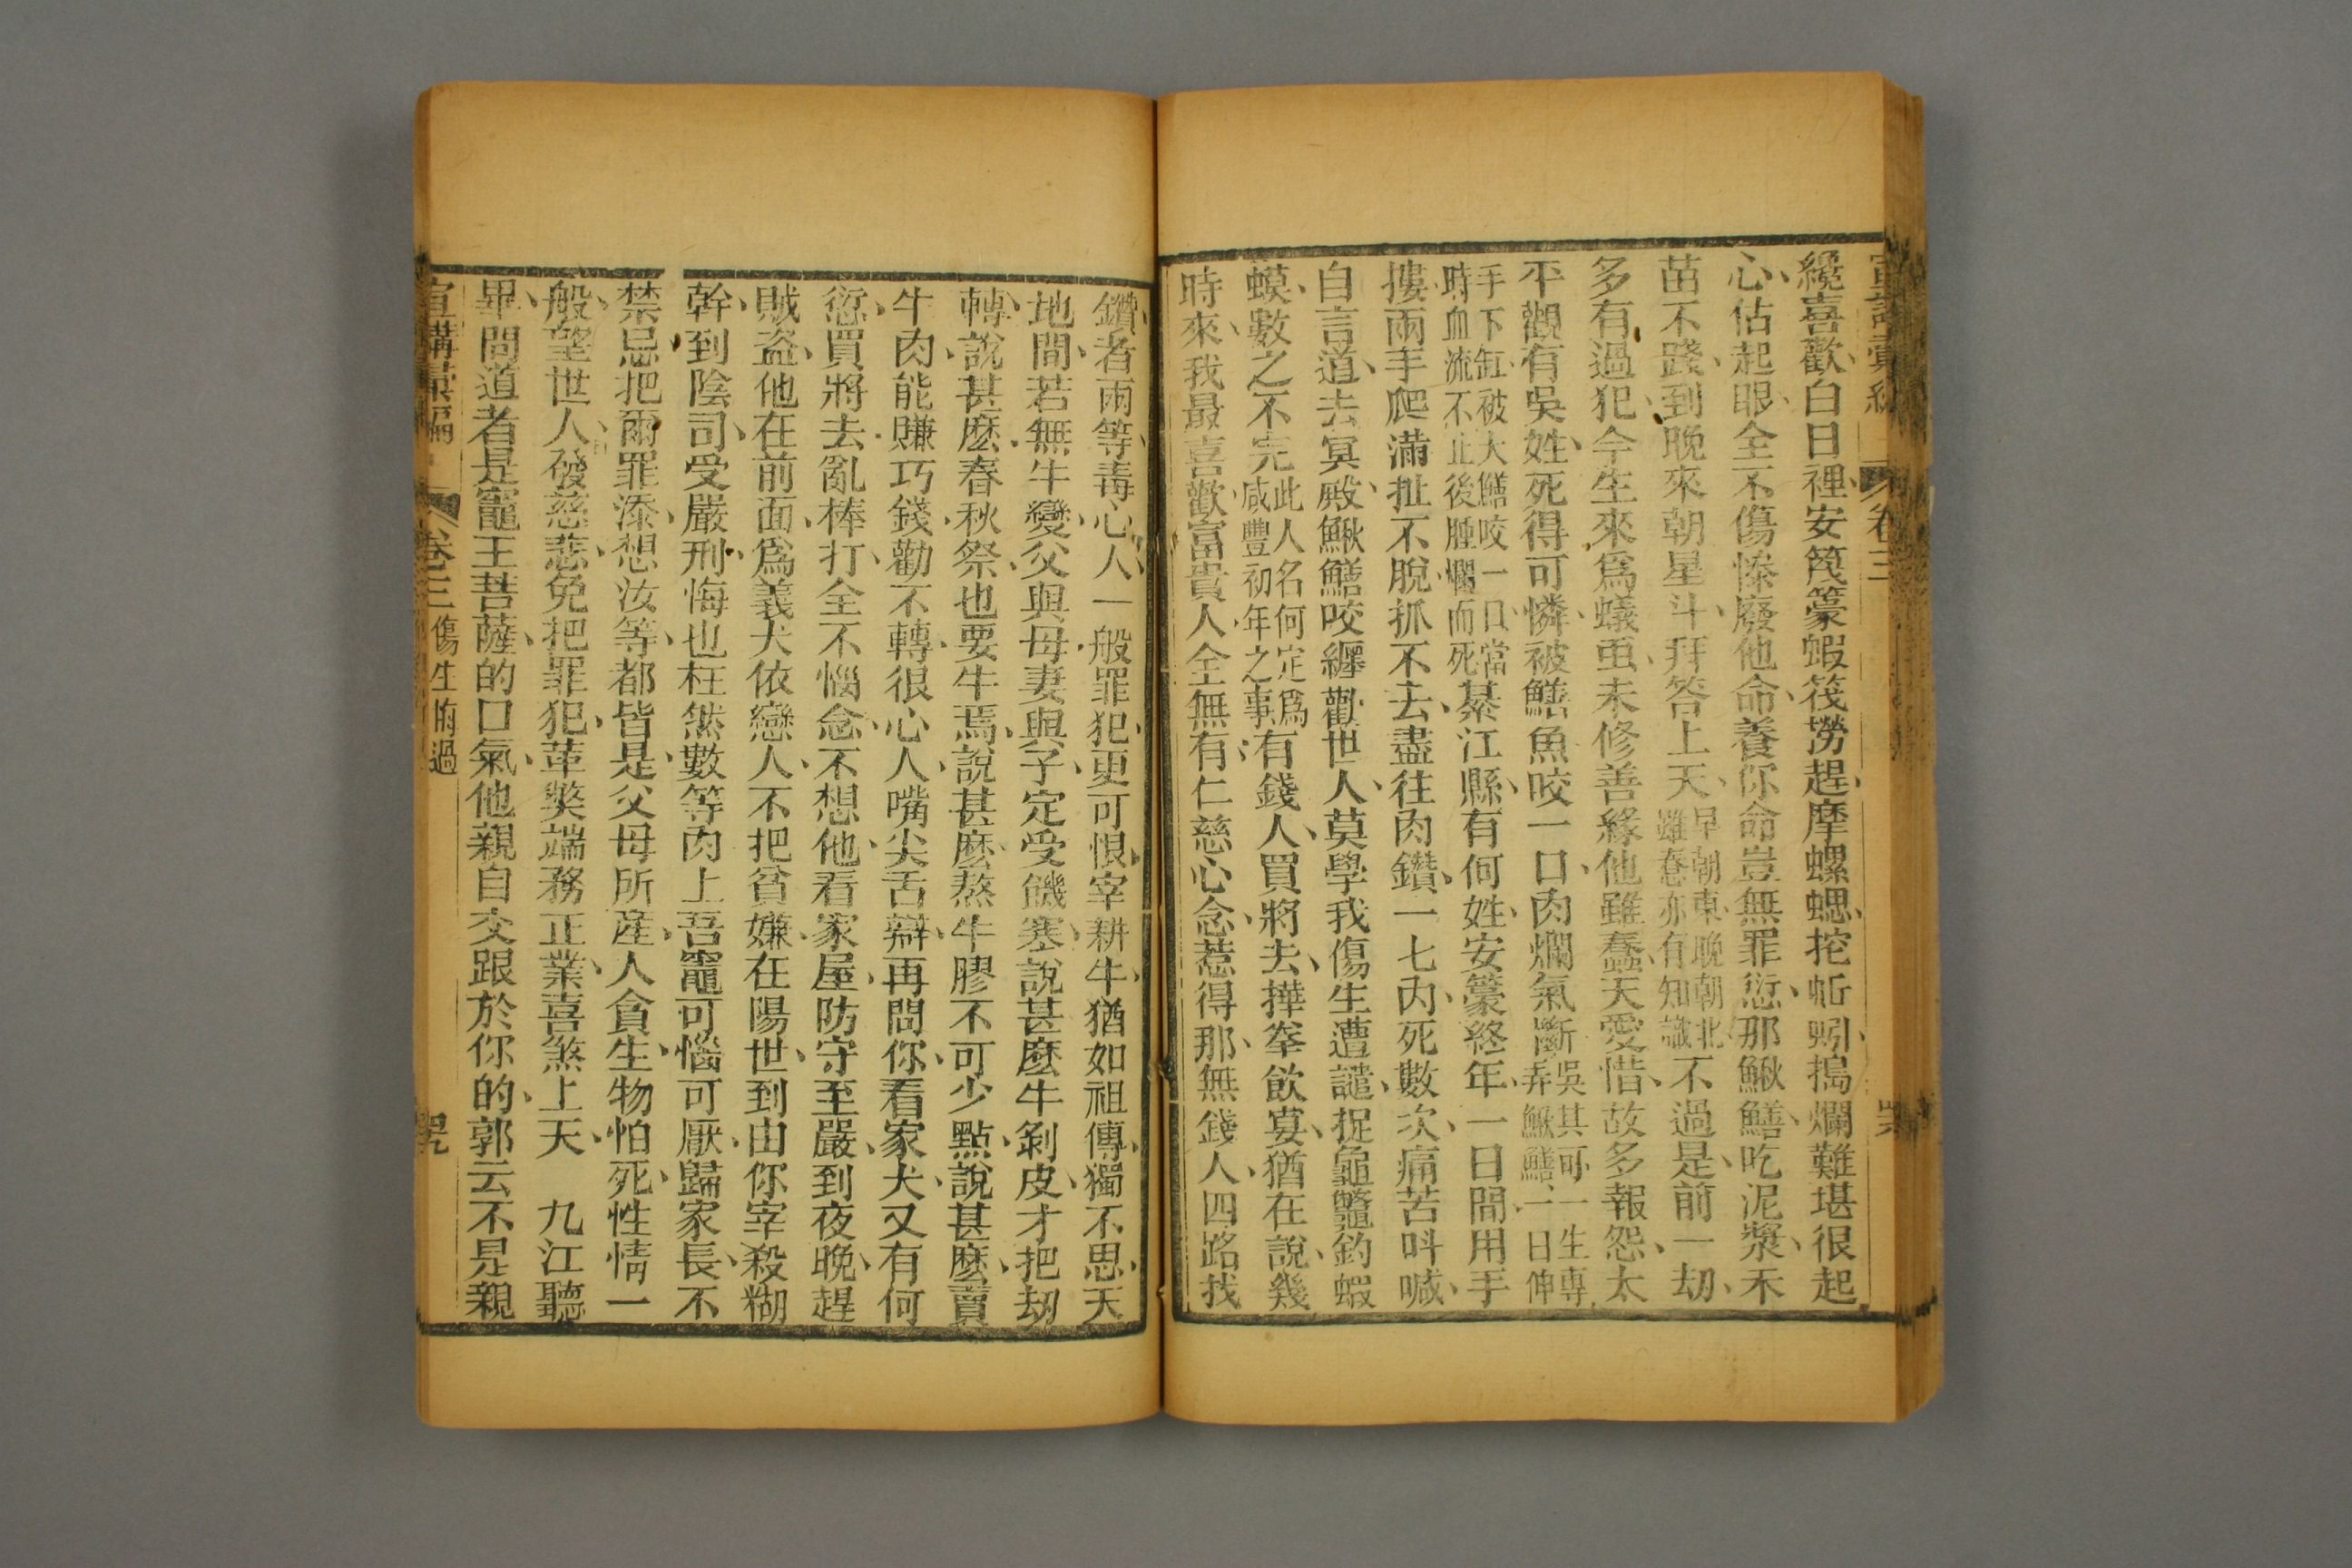 纔喜歡白日裡安筏篆蝦筏撈趕摩螺蟋挖蚯蚓搗爛難堪很起
心估起眼全不傷慘廢他命養你命豈無罪愆那鰍鱔吃泥漿禾
苗不踐到晚來朝星斗拜答上天早朝東晚朝北雖蠢亦有知識不過是前一刧
多有過犯今生來爲蟻虫未修善緣他雖蠢天愛惜故多報怨太
平觀有吳姓死得可憐被鱔魚咬一口肉爛氣斷吳其可一生專弄鰍鱔一日伸
手下缸被大鱔咬一口當時血流不止後腫爛而死綦江縣有何姓安籇終年一日間用手
摟兩手爬滿扯不脫抓不去盡往肉鑽一七內死數次痛苦呌喊
自言道去冥殿鰍鱔咬纒勸世人莫學我傷生遭譴捉龜鼈釣蝦
蟆數之不完此人名何定爲咸豐初年之事有錢人買將去擇拳飲宴猶在說幾
時來我最喜歡富貴人全無有仁慈心念惹得那無錢人四路找
卷三
鑽者兩等毒心人一般罪犯更可恨宰耕牛猶如祖傳獨不思天
地間若無牛變父與母妻與子定受饑寒說甚麼牛剝皮才把刼
轉說甚麼春秋祭也要牛焉說甚麼熬牛膠不可少點說甚麼賣
牛肉能賺巧錢勸不轉很心人嘴尖舌辯再問你看家犬又有何
愆買將去亂棒打全不惱念不想他看家屋防守至嚴到夜晚趕
賊盜他在前面爲義犬依戀人不把貧嫌在陽世到由你宰殺糊
幹到陰司受嚴刑悔也枉然數等肉上吾竈可惱可厭歸家長不
禁忌把爾罪添想汝等都皆是父母所產人貪生物怕死性情一
般望世人發慈悲免把罪犯革獘端務正業喜煞上天　九江聽
畢問道者是竈王菩薩的口氣他親自交跟於你的郭云不是親
宣講彙編　卷三傷生悔過